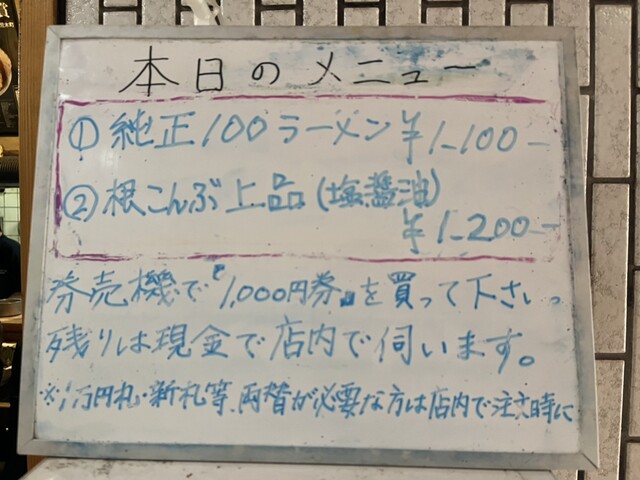 本日のメニュー
① 純正100ラーメン ¥1,100-
② 根こんぶ上品(塩醬油)
¥1,200-
券売機で『1,000円券』を買って下さい
残りは現金で店内で伺います。
※1万円札・新札等、両替が必要な方は店内で注文時に